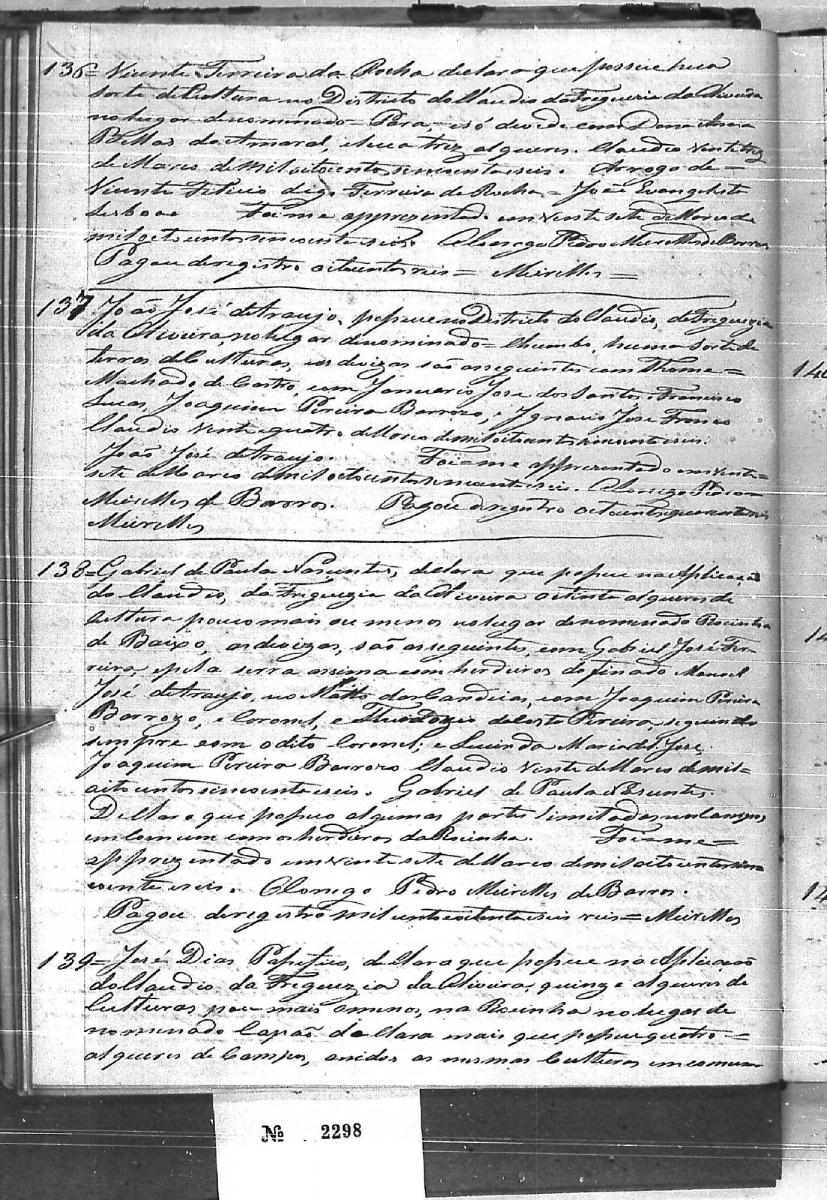 136= Vicente Ferreira da Rocha declara que possue huma
sorte de Cultura no Districto do Claudio da Freguezia da Oliveira
no lugar denominado= Pará, e só devide com Dona Anna
do Amaral, tres alqueres. Claudio vinte tres
de Marco de mil oitocentos sincoenta seis. Arrogo de=
Vicente digo Ferreira da Rocha= João Evangelista
Lisboa Foi me apprezentado em vente sete de Marco de
mil oitocentos sincoenta seis. O Conego Pedro Meirelles de Barros
Pagou de registro oitocentos reis= Meirelles=
137 João José de Araujo, possue no Districto do Claudio, da Freguezia
da Oliveira no lugar denominado= Chumbo, huma Sorte de
terras de Culturas, as devizas são as seguintes com Thome=
Machado de Castro, com Januario Jose dos Santos, Francisco
Lucas, Joaquim Pereira Barrozo, e Ignacio Jose Franco
Claudio vente quatro de Marco de mil oitocentos sincoenta seis.
João José de Araujo. Foi me apprezentado em vente=
sete de Marco de mil oitocentos sincoenta seis. O Conego Pedro=
Meirelles de Barros. Pagou de registro oitocentos quarenta reis
Meirelles
138= Gabriel de Paula declara que possue na Aplicação
do Claudio, da Freguezia da Oliveira oitenta alqueres de
Cultura pouco mais ou menos no lugar denominado Rocinha
de Baixo, as devizas, são as seguintes, com Gabriel José Fer-
reira, e pela serra assima com herdeiros do finado Manoel
José de Araujo, no Matto das Candeias, com Joaquim Pereira
Barrozo, e Coronel, e Theodozio da Costa Pereira, seguindo
sempre com o dito Coronel; e Lucinda Maria de S. José,
Joaquim Pereira Barrozo Claudio vente de Marco de mil=
oitocentos sincoenta seis. Gabriel de Paula
Declaro que possuo algumas partes limitadas
em Comum com os herdeiros da Rocinha. Foi me=
apprezentado em vente sete de Marco de mil oitocentos sin
coenta seis. O Conego Pedro Meirelles de Barros.
Pagou de registro mil cento e oitenta seis reis= Meirelles
139= José Dias declara que possue na Aplicação
do Claudio da Freguezia da Oliveira, quinze alqueres de
Culturas pouco mais a menos, na Rocinha no lugar de
nominado Capão declara mais que possue quatro=
alqueres de Campos, unidos as mesmas Culturas em comum
Nº 2298
140
14
14